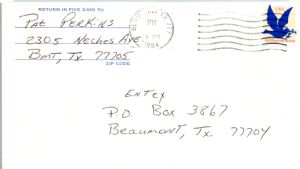 RETURN IN FIVE DAYS TO
Pat Perkins
2305 Neches Ave.
Bmt, Tx 77705
ZIP CODE
PM
1994
USA
Entex
P.O. Box 3867
Beaumont, Tx 77704